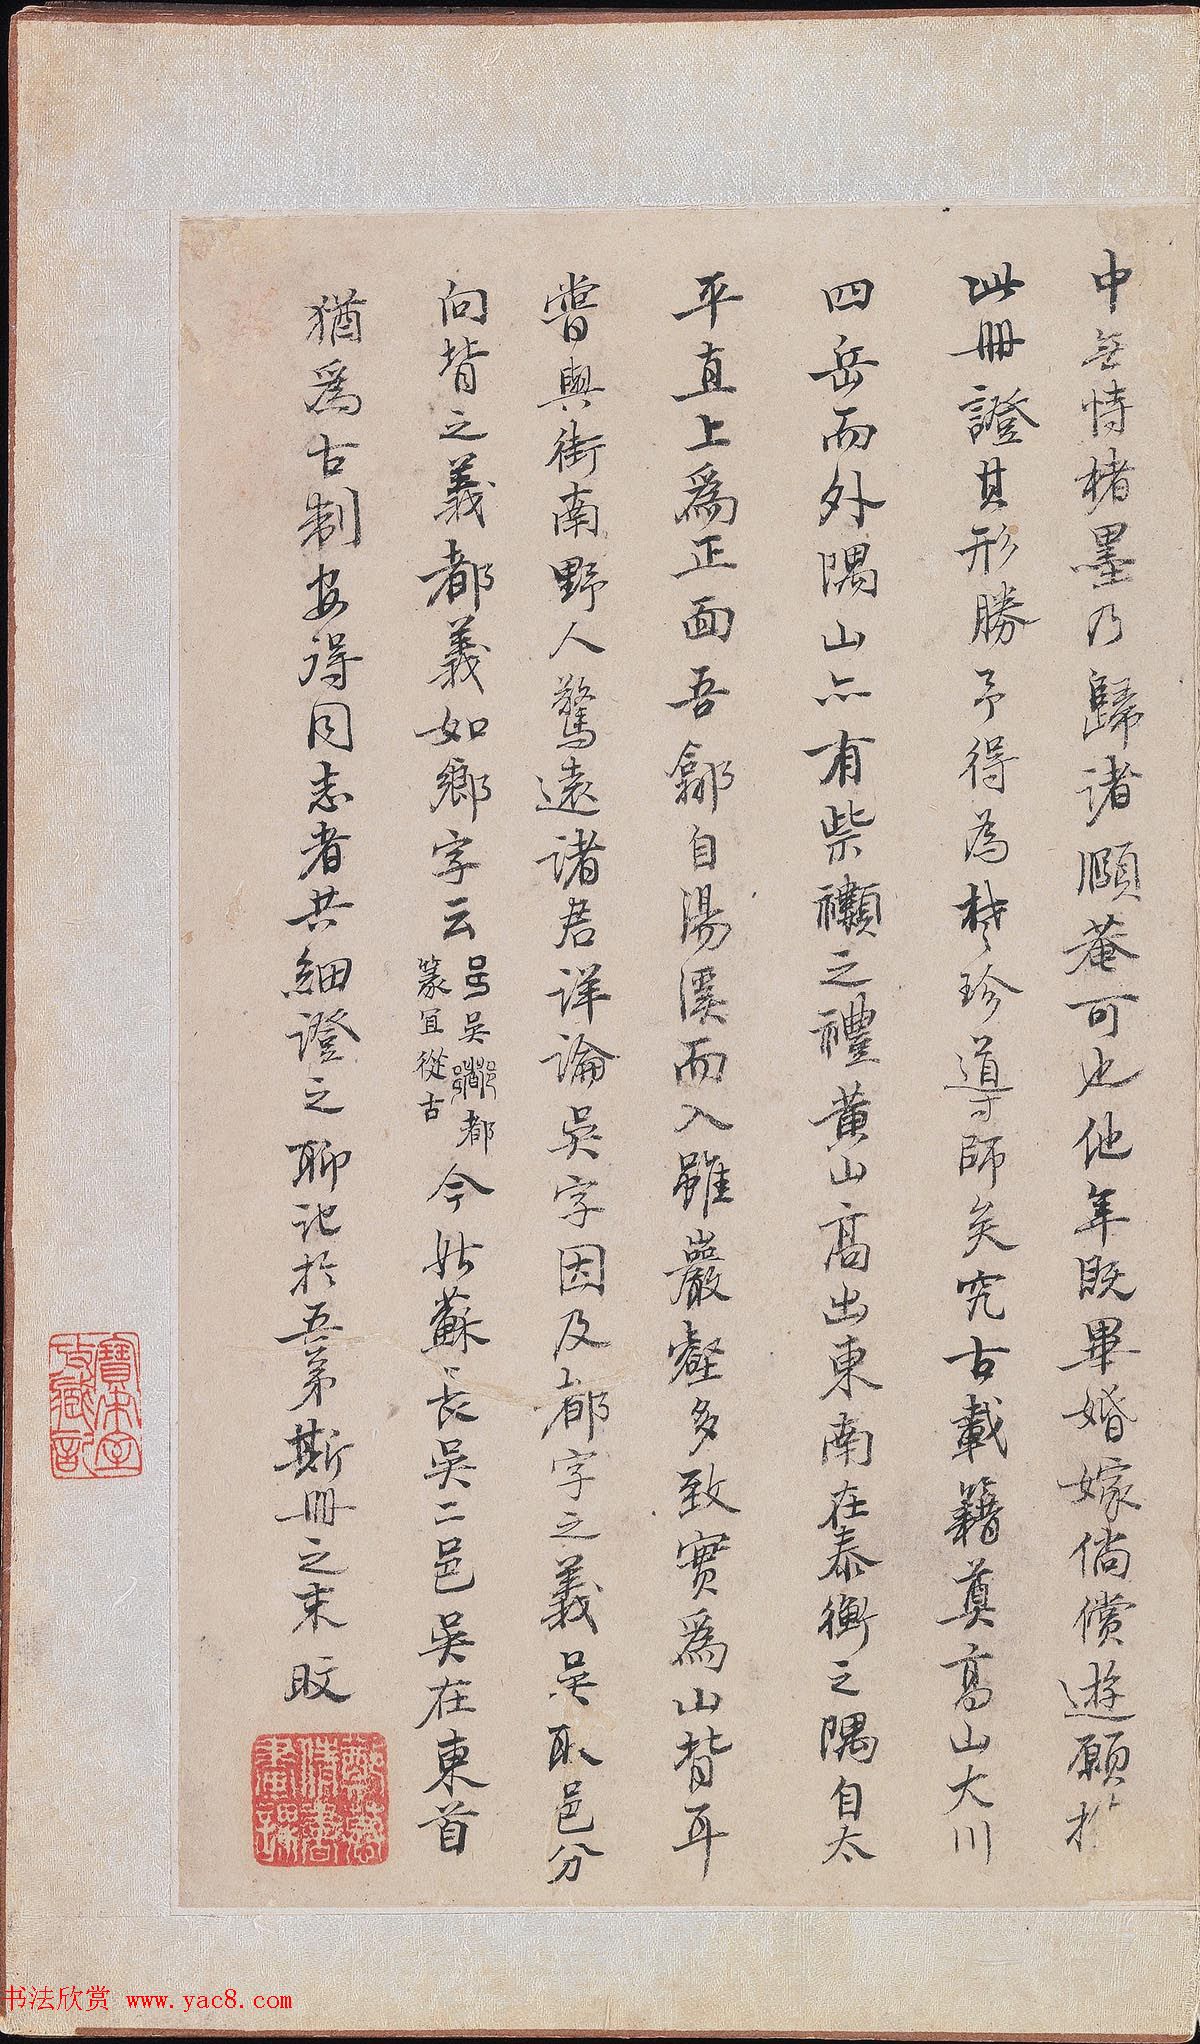 中無恃楮墨乃歸诸頤菴可也他年既畢婚嫁倘償遊願扵
此冊證其形勝予得為梵珍導師矣究古載籍奠高山大川
四岳而外隅山亦有柴禷之禮黄山高出東南在泰衡之隅自太
平直上爲正面吾鄃自湯溪而入雖巖壑多致實爲山背耳
嘗與街南野人驚遠诸君详論吴字因及都字之義吴取邑分
向背之義都義如鄉字云
吴都
篆宜從古
今姑蘇長吴二邑吴在東首
猶爲古制安得同志者共細證之聊記扵吾弟斯冊之末旼
寶宋室攷藏記
书法欣赏 www.yac8.com